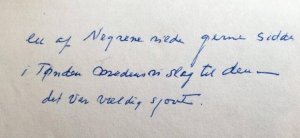 en af Negrene vilde gerne sidde
i Tønden medens vi slog til den —
det var vældig sjovt.